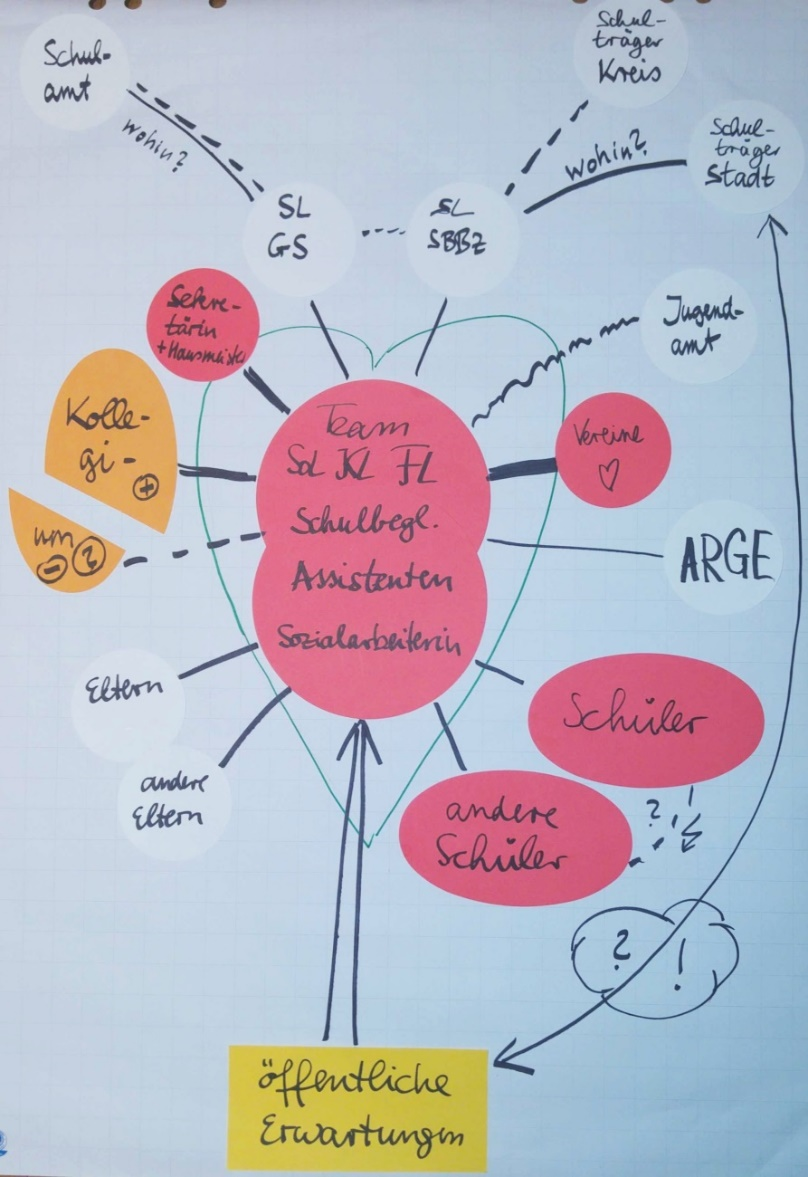 Schul-
amt
Schul-
träger
Kreis
Schul-
träger
Stadt
wohin?
wohin?
SL
GS
SL
SBBZ
Sekre-
tärin
+Hausmeister
Jugend-
amt
Kolle-
gi-
+
um
- ?
Team
SoL KL FL
Schulbegl.
Assistenten
Sozialarbeiterin
Vereine
♡
ARGE
Eltern
andere
Eltern
Schüler
andere
Schüler
?
? !
öffentliche
Erwartungen